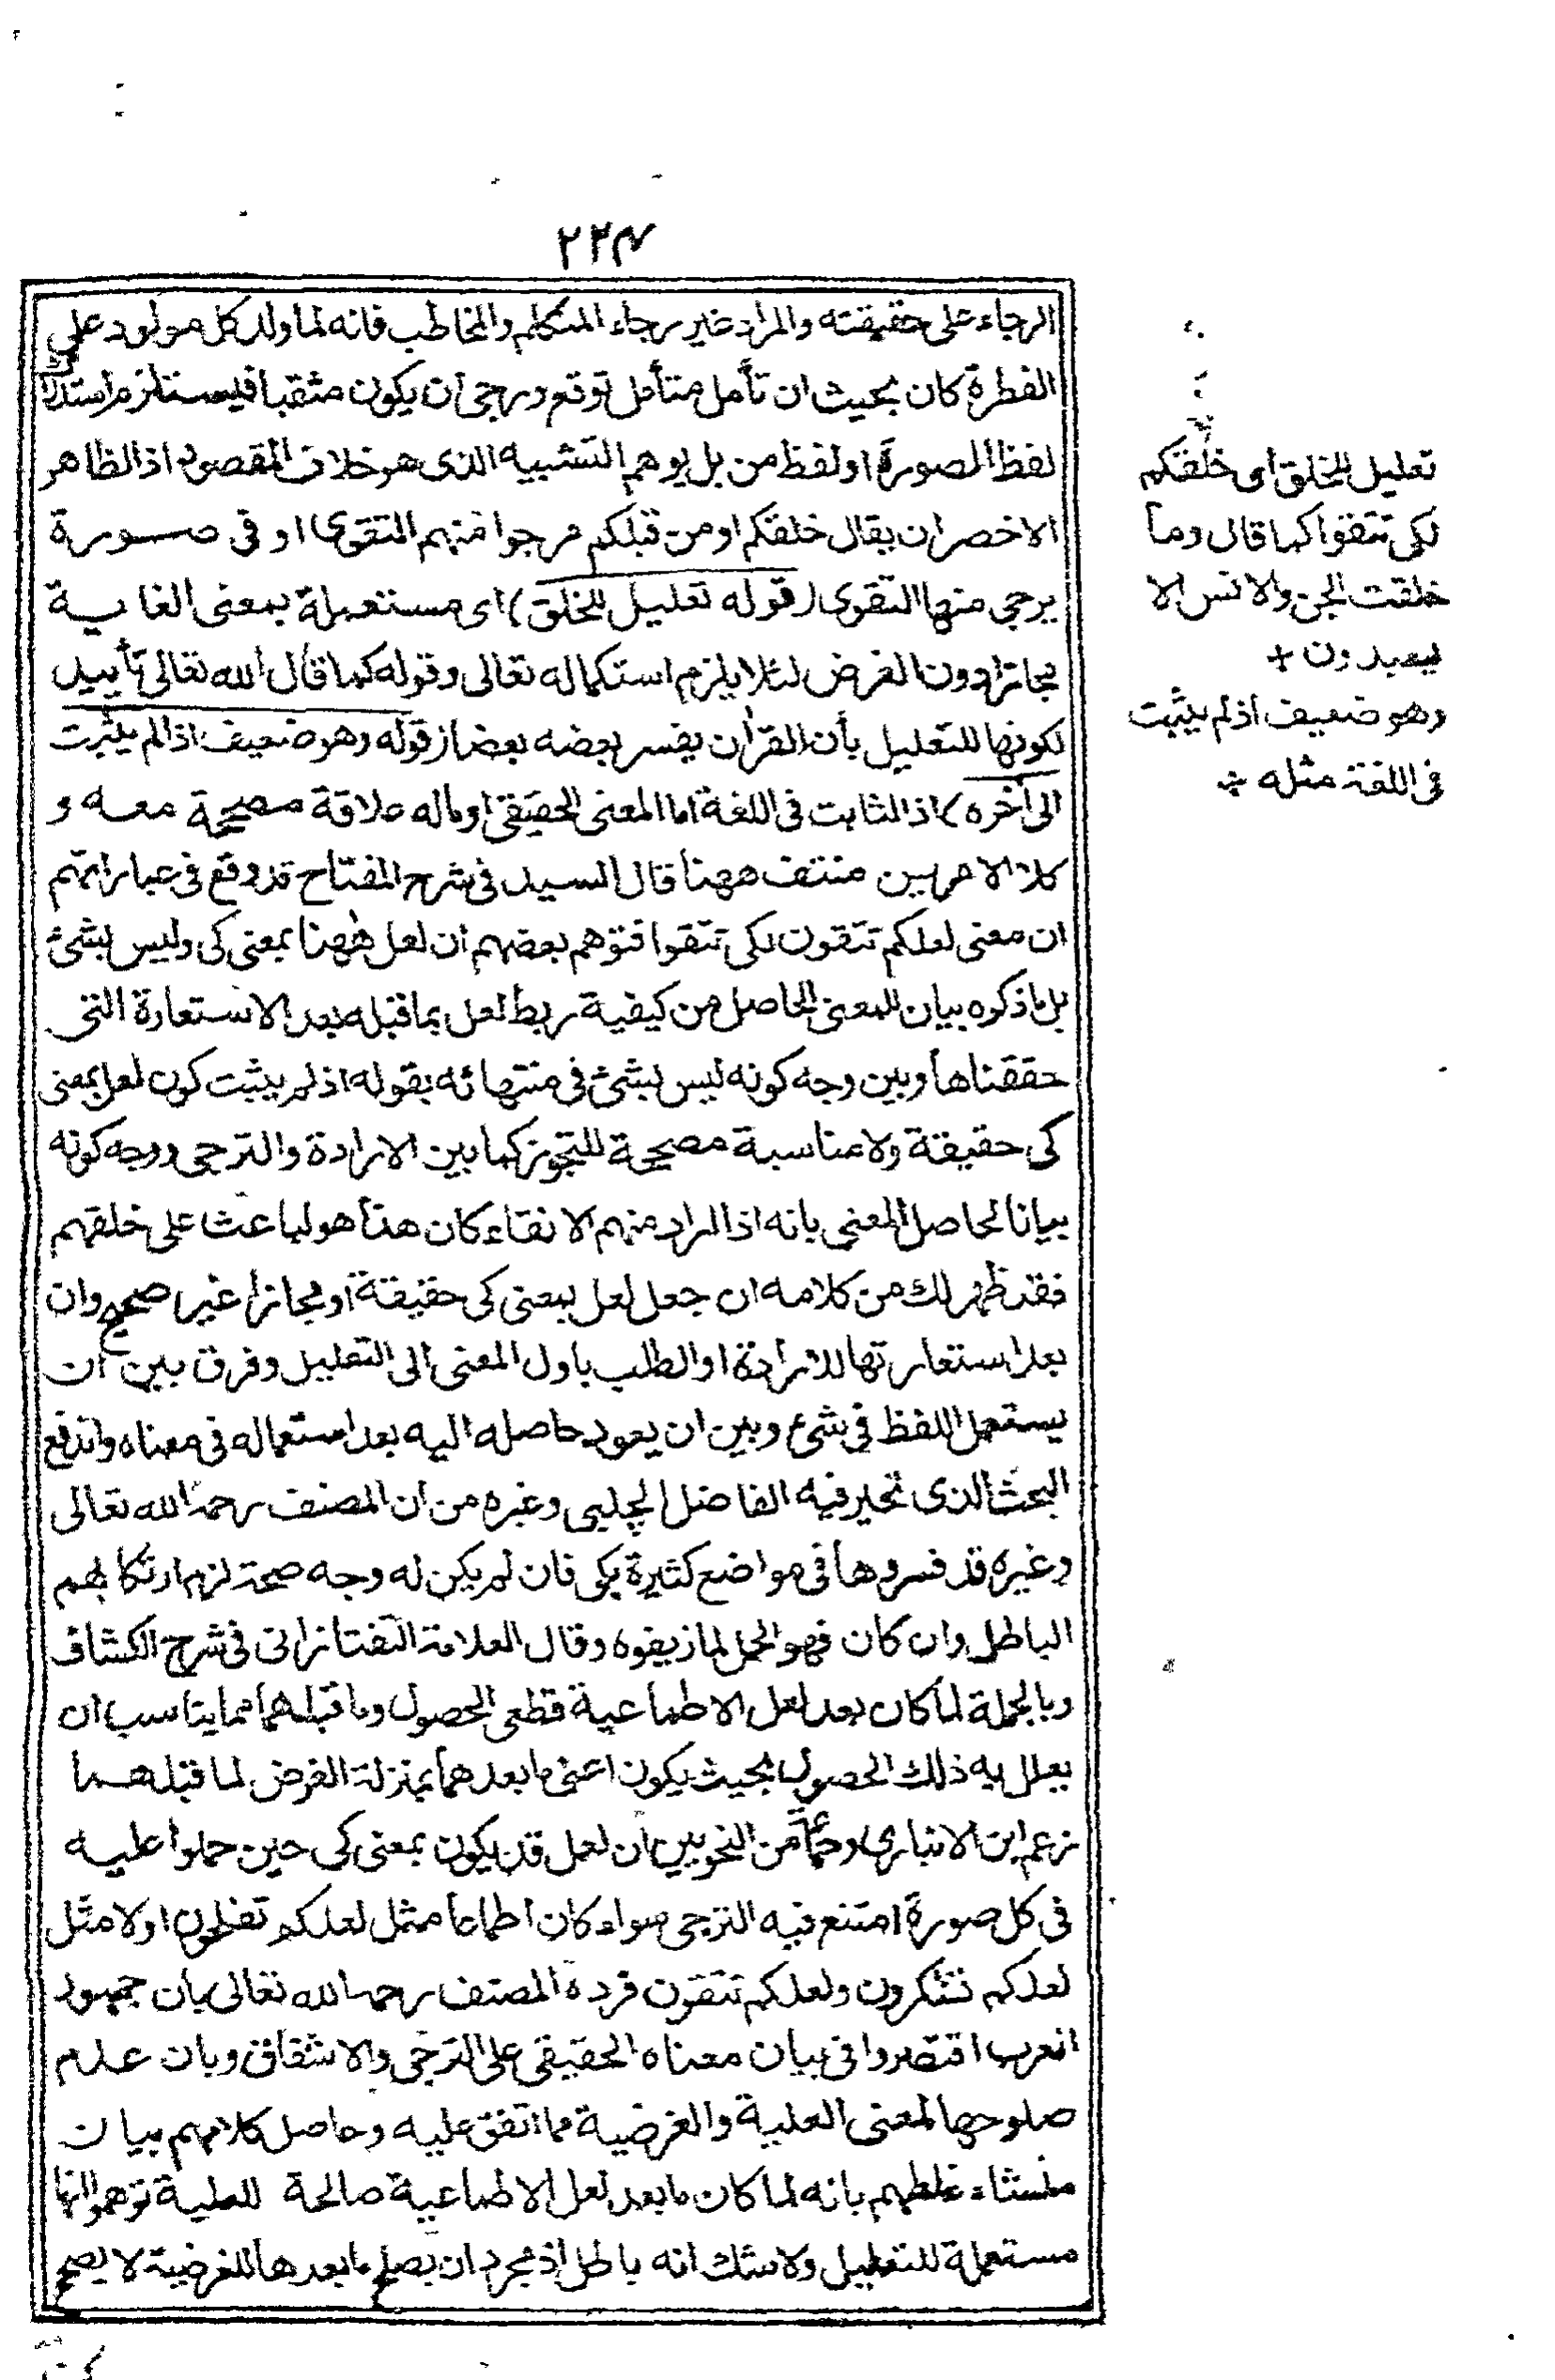 ٢٢٤
الرجاء على حقيقته والمراد غير رجاء المتكلم والمخاطب فانه لما ولد كل مولود على
الفطرة كان بحيث ان تأمل متأمل توقع ورجى ان يكون متقيا فيستلزم استدراك
لفظ الصورة او لفظ من بل يوهم التشبيه الذى هو خلاف المقصود اذ الظاهر
الاخصر ان يقال خلقكم او من قبلكم مرجوا منهم التقوى او فى صورة
يرجى منها التقوى (قوله تعليل للخلق) اى مستعملة بمعنى الغاية
مجازا دون الغرض لئلا يلزم استكماله تعالى وقوله كما قال الله تعالى تأييد
لكونها للتعليل بأن القرأن يفسر بعضه بعضا (قوله وهو ضعيف اذ لم يثبت
الى أخره) اذ الثابت فى اللغة اما المعنى الحقيقى او ماله علاقة مصححة معه و
كلا الامرين منتف ههنا قال السيد فى شرح المفتاح قد وقع فى عباراتهم
ان معنى لعلكم تتقون لكى تتقوا فتوهم بعضهم ان لعل ههنا بمعنى كى وليس بشئ
بل ما ذكروه بيان للمعنى الحاصل من كيفية ربط لعل بما قبله بعد الاستعارة التى
حققناها وبين وجه كونه ليس بشئ فى منتهائه بقوله اذ لم يثبت كون لعل بمعنى
كى حقيقة ولا مناسبة مصححة للتجوز كما بين الارادة والترجى ووجه كونه
بيانا لحاصل المعنى بانه اذا اراد منهم الاتقاء كان هذا هو الباعث على خلقهم
فقد ظهر لك من كلامه ان جعل لعل بمعنى كى حقيقة او مجازا غير صحيح وان
بعد استعارتها للارادة او الطلب يأول المعنى الى التعليل وفرق بين ان
يستعمل اللفظ فى شئ وبين ان يعود حاصله اليه بعد استعماله فى معناه واندفع
البحث الذى تحير فيه الفاضل الچلپى وغيره من ان المصنف رحمه الله تعالى
وغيره قد فسروها فى مواضع كثيرة بكى فان لم يكن له وجه صحة لزم ارتكابهم
الباطل وان كان فهو المحل لما زيفوه وقال العلامة التفتازانى فى شرح الكشاف
وبالجملة لما كان بعد لعل الاطماعية قطعى الحصول وما قبلهما مما يناسب ان
يعلل به ذلك الحصول بحيث يكون اعنى ما بعدهما بمنزلة الغرض لما قبلهما
زعم ابن الانبارى وجماعة من النحويين ان لعل قد يكون بمعنى كى حين حملوا عليه
فى كل صورة امتنع فيه الترجى سواء كان اطماعا مثل لعلكم تفلحون اولا مثل
لعلكم تشكرون ولعلكم تتقون فرده المصنف رحمه الله تعالى بان جمهور
العرب اقتصروا فى بيان معناه الحقيقى على الترجى والاشفاق وبان عدم
صلوحها لمعنى العلية والغرضية مما اتفق عليه وحاصل كلامهم بيان
منشاء غلطهم بانه لما كان ما بعد لعل الاطماعية صالحة للعلية توهموا انها
مستعملة للتعليل ولا شك انه باطل اذ مجرد ان يصلح ما بعدها للغرضية لا يصحح
تعليل للخلق اى خلقكم
لكى تتقوا كما قال وما
خلقت الجن والانس الا
ليعبدون +
وهو ضعيف اذ لم يثبت
فى اللغة مثله +